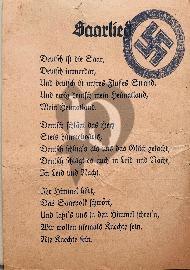 Saarlied
Deutsch ist die Saar,
Deutsch immerdar,
Und deutsch ist unsres Flusses Strand,
Und ewig deutsch mein Heimatland,
Mein Heimatland.
Deutsch schlägt das Herz
Stets himmelwärts,
Deutsch schlug's als uns das Glück gelacht,
Deutsch schlägt es auch in Leid und Nacht,
In Leid und Nacht.
Ihr Himmel hört,
Das Saarvolk schwört,
Und laßt's uns in den Himmel schrein,
Wir wollen niemals Knechte sein,
Nie Knechte sein.